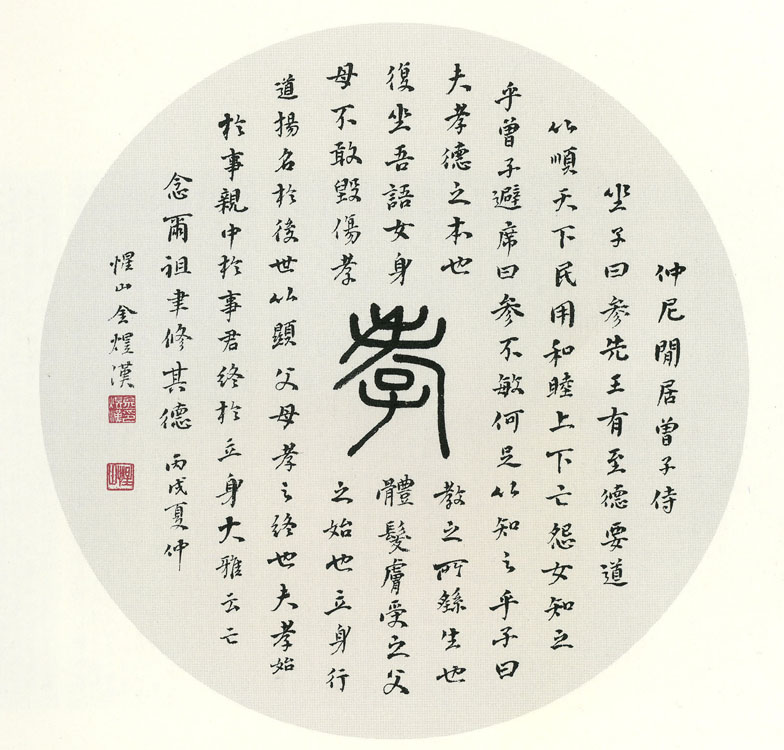 仲尼閒居曾子侍
坐子曰參先王有至德要道
以順天下民用和睦上下亡怨女知之
乎曾子避席曰參不敏何足以知之乎子曰
夫孝德之本也
教之所繇生也
復坐吾語女身
體髮膚受之父
母不敢毀傷孝
之始也立身行
孝
道揚名於後世以顯父母孝之終也夫孝始
於事親中於事君終於立身大雅云亡
念爾祖聿修其德 丙戌夏仲
惺山金漢